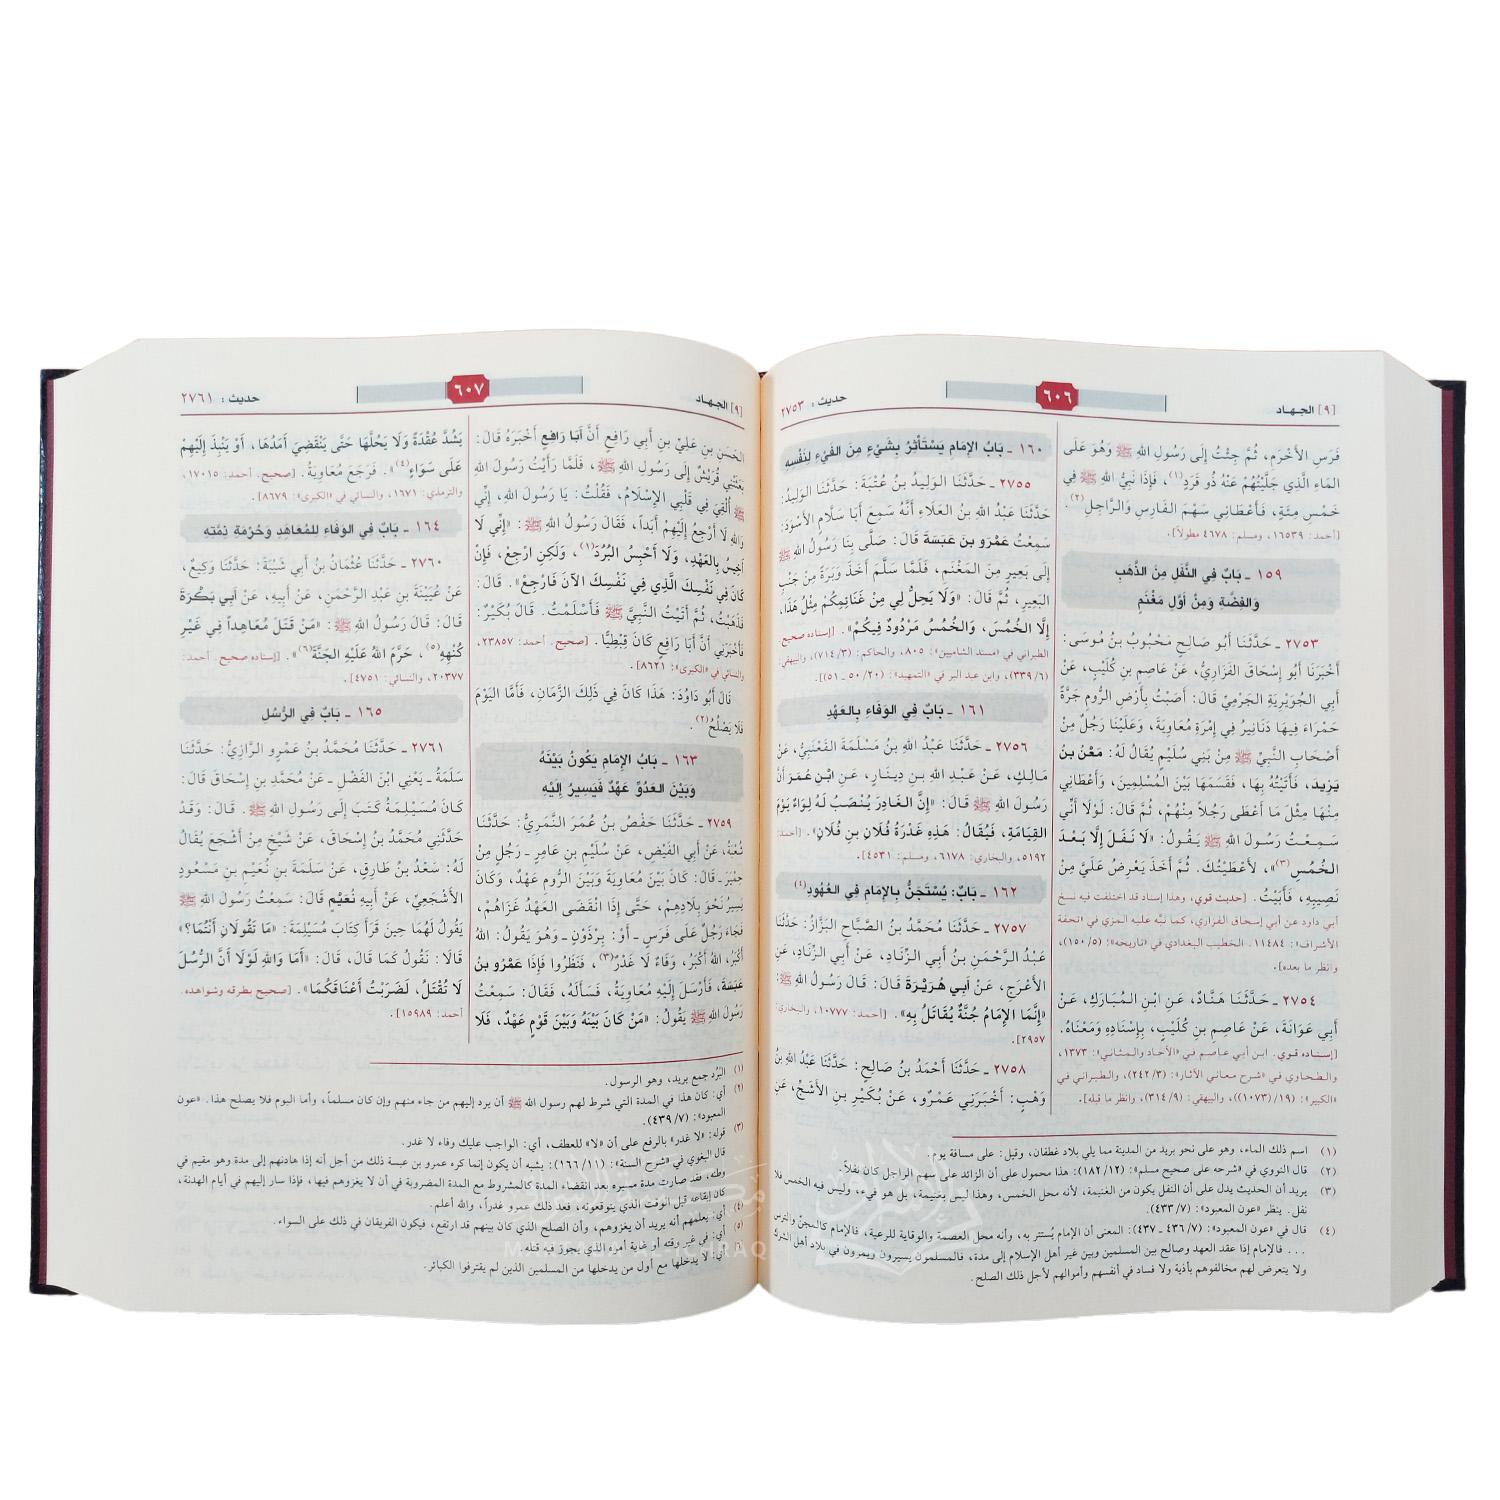 [٩] الجـهـاد
٦٠٦
حديث : ٢٧٥٣
فَرَسِ الأَخْرَمِ، ثُمَّ جِئْتُ إِلَى رَسُولِ اللهِ ﷺ وَهُوَ عَلَى
المَاءِ الَّذِي جَلَّيْتُهُمْ عَنْهُ ذُو قَرَدٍ(١)، فَإِذَا نَبِيُّ اللهِ ﷺ فِي
خَمْسِ مِئَةٍ، فَأَعْطَانِي سَهْمَ الفَارِسِ وَالرَّاجِلِ(٢).
[أحمد: ١٦٥٣٩، ومسلم: ٤٦٧٨ مطولاً].
١٥٩ ـ بَابٌ فِي النَّفَلِ مِنَ الذَّهَبِ
وَالفِضَّةِ وَمِنْ أَوَّلِ مَغْنَمٍ
٢٧٥٣ ـ حَدَّثَنَا أَبُو صَالِحٍ مَحْبُوبُ بنُ مُوسَى:
أَخْبَرَنَا أَبُو إِسْحَاقَ الفَزَارِيُّ، عَنْ عَاصِمِ بنِ كُلَيْبٍ، عَنْ
أَبِي الجُوَيْرِيَةِ الجَرْمِيِّ قَالَ: أَصَبْتُ بِأَرْضِ الرُّومِ جَرَّةً
حَمْرَاءَ فِيهَا دَنَانِيرُ فِي إِمْرَةِ مُعَاوِيَةَ، وَعَلَيْنَا رَجُلٌ مِنْ
أَصْحَابِ النَّبِيِّ ﷺ مِنْ بَنِي سُلَيْمٍ يُقَالُ لَهُ: مَعْنُ بنُ
يَزِيدَ، فَأَتَيْتُهُ بِهَا، فَقَسَمَهَا بَيْنَ المُسْلِمِينَ، وَأَعْطَانِي
مِنْهَا مِثْلَ مَا أَعْطَى رَجُلاً مِنْهُمْ، ثُمَّ قَالَ: لَوْلَا أَنِّي
سَمِعْتُ رَسُولَ اللهِ ﷺ يَقُولُ: «لَا نَفَلَ إِلَّا بَعْدَ
الخُمُسِ(٣)»، لأَعْطَيْتُكَ. ثُمَّ أَخَذَ يَعْرِضُ عَلَيَّ مِنْ
نَصِيبِهِ، فَأَبَيْتُ. [حديث قوي، وهذا إسناد قد اختلفت فيه نسخ
أبي داود عن أبي إسحاق الفزاري، كما نبَّه عليه المزي في «تحفة
الأشراف»: ١١٤٨٤. الخطيب البغدادي في «تاريخه»: (٥/ ١٥٠)،
وانظر ما بعده].
٢٧٥٤ ـ حَدَّثَنَا هَنَّادٌ، عَنِ ابْنِ المُبَارَكِ، عَنْ
أَبِي عَوَانَةَ، عَنْ عَاصِمِ بنِ كُلَيْبٍ، بِإِسْنَادِهِ وَمَعْنَاهُ.
[إسناده قوي. ابن أبي عاصم في «الآحاد والمثاني»: ١٣٧٣،
والطحاوي في «شرح معاني الآثار»: (٣/ ٢٤٢)، والطبراني في
«الكبير»: (١٩/ (١٠٧٣))، والبيهقي: (٩/ ٣١٤)، وانظر ما قبله].
١٦٠ ـ بَابُ الإِمَامِ يَسْتَأْثِرُ بِشَيْءٍ مِنَ الفَيْءِ لِنَفْسِهِ
٢٧٥٥ ـ حَدَّثَنَا الوَلِيدُ بنُ عُتْبَةَ: حَدَّثَنَا الوَلِيدُ:
حَدَّثَنَا عَبْدُ اللهِ بنُ العَلَاءِ أَنَّهُ سَمِعَ أَبَا سَلَّامٍ الأَسْوَدَ:
سَمِعْتُ عَمْرَو بنَ عَبَسَةَ قَالَ: صَلَّى بِنَا رَسُولُ اللهِ ﷺ
إِلَى بَعِيرٍ مِنَ المَغْنَمِ، فَلَمَّا سَلَّمَ أَخَذَ وَبَرَةً مِنْ جَنْبِ
البَعِيرِ، ثُمَّ قَالَ: «وَلَا يَحِلُّ لِي مِنْ غَنَائِمِكُمْ مِثْلُ هَذَا،
إِلَّا الخُمُسَ، وَالخُمُسُ مَرْدُودٌ فِيكُمْ». [إسناده صحيح.
الطبراني في «مسند الشاميين»: ٨٠٥، والحاكم: (٣/ ٧١٤)، والبيهقي:
(٦/ ٣٣٩)، وابن عبد البر في «التمهيد»: (٢٠/ ٥٠ ـ ٥١)].
١٦١ ـ بَابٌ فِي الوَفَاءِ بِالعَهْدِ
٢٧٥٦ ـ حَدَّثَنَا عَبْدُ اللهِ بنُ مَسْلَمَةَ القَعْنَبِيُّ، عَنْ
مَالِكٍ، عَنْ عَبْدِ اللهِ بنِ دِينَارٍ، عَنِ ابْنِ عُمَرَ أَنَّ
رَسُولَ اللهِ ﷺ قَالَ: «إِنَّ الغَادِرَ يُنْصَبُ لَهُ لِوَاءٌ يَوْمَ
القِيَامَةِ، فَيُقَالُ: هَذِهِ غَدْرَةُ فُلَانِ بنِ فُلَانٍ». [أحمد:
٥١٩٢، والبخاري: ٦١٧٨، ومسلم: ٤٥٣١].
١٦٢ ـ بَابٌ: يُسْتَجَنُّ بِالإِمَامِ فِي العُهُودِ(٤)
٢٧٥٧ ـ حَدَّثَنَا مُحَمَّدُ بنُ الصَّبَّاحِ البَزَّازُ: حَدَّثَنَا
عَبْدُ الرَّحْمَنِ بنُ أَبِي الزِّنَادِ، عَنْ أَبِي الزِّنَادِ، عَنِ
الأَعْرَجِ، عَنْ أَبِي هُرَيْرَةَ قَالَ: قَالَ رَسُولُ اللهِ ﷺ:
«إِنَّمَا الإِمَامُ جُنَّةٌ يُقَاتَلُ بِهِ». [أحمد: ١٠٧٧٧، والبخاري:
٢٩٥٧].
٢٧٥٨ ـ حَدَّثَنَا أَحْمَدُ بنُ صَالِحٍ: حَدَّثَنَا عَبْدُ اللهِ بنُ
وَهْبٍ: أَخْبَرَنِي عَمْرٌو، عَنْ بُكَيْرِ بنِ الأَشَجِّ، عَنِ
(١) اسم ذلك الماء، وهو على نحو بريد من المدينة مما يلي بلاد غطفان، وقيل: على مسافة يوم.
(٢) قال النووي في «شرحه على صحيح مسلم»: (١٢/ ١٨٢): هذا محمول على أن الزائد على سهم الراجل كان نفلاً.
(٣) يريد أن الحديث يدل على أن النفل يكون من الغنيمة، لأنه محل الخمس، وهذا ليس بغنيمة، بل هو فيء، وليس فيه الخمس فلا
نفل. ينظر «عون المعبود»: (٧/ ٤٣٣).
(٤) قال في «عون المعبود»: (٧/ ٤٣٦ ـ ٤٣٧): المعنى أن الإمام يُستتر به، وأنه محل العصمة والوقاية للرعية، فالإمام كالمجنّ والترس
... فالإمام إذا عقد العهد وصالح بين المسلمين وبين غير أهل الإسلام إلى مدة، فالمسلمون يسيرون ويمرون في بلاد أهل الشرك
ولا يتعرض لهم مخالفوهم بأذية ولا فساد في أنفسهم وأموالهم لأجل ذلك الصلح.
[٩] الجـهـاد
٦٠٧
حديث : ٢٧٦١
الحَسَنِ بنِ عَلِيِّ بنِ أَبِي رَافِعٍ أَنَّ أَبَا رَافِعٍ أَخْبَرَهُ قَالَ:
بَعَثَتْنِي قُرَيْشٌ إِلَى رَسُولِ اللهِ ﷺ، فَلَمَّا رَأَيْتُ رَسُولَ اللهِ
ﷺ أُلْقِيَ فِي قَلْبِي الإِسْلَامُ، فَقُلْتُ: يَا رَسُولَ اللهِ، إِنِّي
وَاللهِ لَا أَرْجِعُ إِلَيْهِمْ أَبَداً، فَقَالَ رَسُولُ اللهِ ﷺ: «إِنِّي لَا
أَخِيسُ بِالعَهْدِ، وَلَا أَحْبِسُ البُرُدَ(١)، وَلَكِنِ ارْجِعْ، فَإِنْ
كَانَ فِي نَفْسِكَ الَّذِي فِي نَفْسِكَ الآنَ فَارْجِعْ». قَالَ:
فَذَهَبْتُ، ثُمَّ أَتَيْتُ النَّبِيَّ ﷺ فَأَسْلَمْتُ. قَالَ بُكَيْرٌ:
فَأَخْبَرَنِي أَنَّ أَبَا رَافِعٍ كَانَ قِبْطِيًّا. [صحيح. أحمد: ٢٣٨٥٧،
والنسائي في «الكبرى»: ٨٦٢١].
قَالَ أَبُو دَاوُدَ: هَذَا كَانَ فِي ذَلِكَ الزَّمَانِ، فَأَمَّا اليَوْمَ
فَلَا يَصْلُحُ(٢).
١٦٣ ـ بَابُ الإِمَامِ يَكُونُ بَيْنَهُ
وَبَيْنَ العَدُوِّ عَهْدٌ فَيَسِيرُ إِلَيْهِ
٢٧٥٩ ـ حَدَّثَنَا حَفْصُ بنُ عُمَرَ النَّمَرِيُّ: حَدَّثَنَا
شُعْبَةُ، عَنْ أَبِي الفَيْضِ، عَنْ سُلَيْمِ بنِ عَامِرٍ ـ رَجُلٍ مِنْ
حِمْيَرَ ـ قَالَ: كَانَ بَيْنَ مُعَاوِيَةَ وَبَيْنَ الرُّومِ عَهْدٌ، وَكَانَ
يَسِيرُ نَحْوَ بِلَادِهِمْ، حَتَّى إِذَا انْقَضَى العَهْدُ غَزَاهُمْ،
فَجَاءَ رَجُلٌ عَلَى فَرَسٍ ـ أَوْ: بِرْذَوْنٍ ـ وَهُوَ يَقُولُ: اللهُ
أَكْبَرُ، اللهُ أَكْبَرُ، وَفَاءٌ لَا غَدْرٌ(٣)، فَنَظَرُوا فَإِذَا عَمْرُو بنُ
عَبَسَةَ، فَأَرْسَلَ إِلَيْهِ مُعَاوِيَةُ، فَسَأَلَهُ، فَقَالَ: سَمِعْتُ
رَسُولَ اللهِ ﷺ يَقُولُ: «مَنْ كَانَ بَيْنَهُ وَبَيْنَ قَوْمٍ عَهْدٌ، فَلَا
يَشُدَّ عُقْدَةً وَلَا يَحُلَّهَا حَتَّى يَنْقَضِيَ أَمَدُهَا، أَوْ يَنْبِذَ إِلَيْهِمْ
عَلَى سَوَاءٍ(٤)». فَرَجَعَ مُعَاوِيَةُ. [صحيح. أحمد: ١٧٠١٥،
والترمذي: ١٦٧١، والنسائي في «الكبرى»: ٨٦٧٩].
١٦٤ ـ بَابٌ فِي الوَفَاءِ لِلْمُعَاهَدِ وَحُرْمَةِ ذِمَّتِهِ
٢٧٦٠ ـ حَدَّثَنَا عُثْمَانُ بنُ أَبِي شَيْبَةَ: حَدَّثَنَا وَكِيعٌ،
عَنْ عُيَيْنَةَ بنِ عَبْدِ الرَّحْمَنِ، عَنْ أَبِيهِ، عَنْ أَبِي بَكْرَةَ
قَالَ: قَالَ رَسُولُ اللهِ ﷺ: «مَنْ قَتَلَ مُعَاهِداً فِي غَيْرِ
كُنْهِهِ(٥)، حَرَّمَ اللهُ عَلَيْهِ الجَنَّةَ(٦)». [إسناده صحيح. أحمد:
٢٠٣٧٧، والنسائي: ٤٧٥١].
١٦٥ ـ بَابٌ فِي الرُّسُلِ
٢٧٦١ ـ حَدَّثَنَا مُحَمَّدُ بنُ عَمْرٍو الرَّازِيُّ: حَدَّثَنَا
سَلَمَةُ ـ يَعْنِي ابْنَ الفَضْلِ ـ عَنْ مُحَمَّدِ بنِ إِسْحَاقَ قَالَ:
كَانَ مُسَيْلِمَةُ كَتَبَ إِلَى رَسُولِ اللهِ ﷺ. قَالَ: وَقَدْ
حَدَّثَنِي مُحَمَّدُ بنُ إِسْحَاقَ، عَنْ شَيْخٍ مِنْ أَشْجَعَ يُقَالُ
لَهُ: سَعْدُ بنُ طَارِقٍ، عَنْ سَلَمَةَ بنِ نُعَيْمِ بنِ مَسْعُودٍ
الأَشْجَعِيِّ، عَنْ أَبِيهِ نُعَيْمٍ قَالَ: سَمِعْتُ رَسُولَ اللهِ ﷺ
يَقُولُ لَهُمَا حِينَ قَرَأَ كِتَابَ مُسَيْلِمَةَ: «مَا تَقُولَانِ أَنْتُمَا؟»
قَالَا: نَقُولُ كَمَا قَالَ، قَالَ: «أَمَا وَاللهِ لَوْلَا أَنَّ الرُّسُلَ
لَا تُقْتَلُ، لَضَرَبْتُ أَعْنَاقَكُمَا». [صحيح بطرقه وشواهده.
أحمد: ١٥٩٨٩].
(١) البُرُد جمع بريد، وهو الرسول.
(٢) أي: كان هذا في المدة التي شرط لهم رسول الله ﷺ أن يرد إليهم من جاء منهم وإن كان مسلماً، وأما اليوم فلا يصلح هذا. «عون
المعبود»: (٧/ ٤٣٩).
(٣) قوله: «لا غدر» بالرفع على أن «لا» للعطف، أي: الواجب عليك وفاء لا غدر.
قال البغوي في «شرح السنة»: (١١/ ١٦٦): يشبه أن يكون إنما كره عمرو بن عبسة ذلك من أجل أنه إذا هادنهم إلى مدة وهو مقيم في
وطنه، فقد صارت مدة مسيره بعد انقضاء المدة كالمشروط مع المدة المضروبة في أن لا يغزوهم فيها، فإذا سار إليهم في أيام الهدنة،
كان إيقاعه قبل الوقت الذي يتوقعونه، فعد ذلك عمرو غدراً، والله أعلم.
(٤) أي: يعلمهم أنه يريد أن يغزوهم، وأن الصلح الذي كان بينهم قد ارتفع، فيكون الفريقان في ذلك على السواء.
(٥) أي: في غير وقته أو غاية أمره الذي يجوز فيه قتله.
أي: لا يدخلها مع أول من يدخلها من المسلمين الذين لم يقترفوا الكبائر.